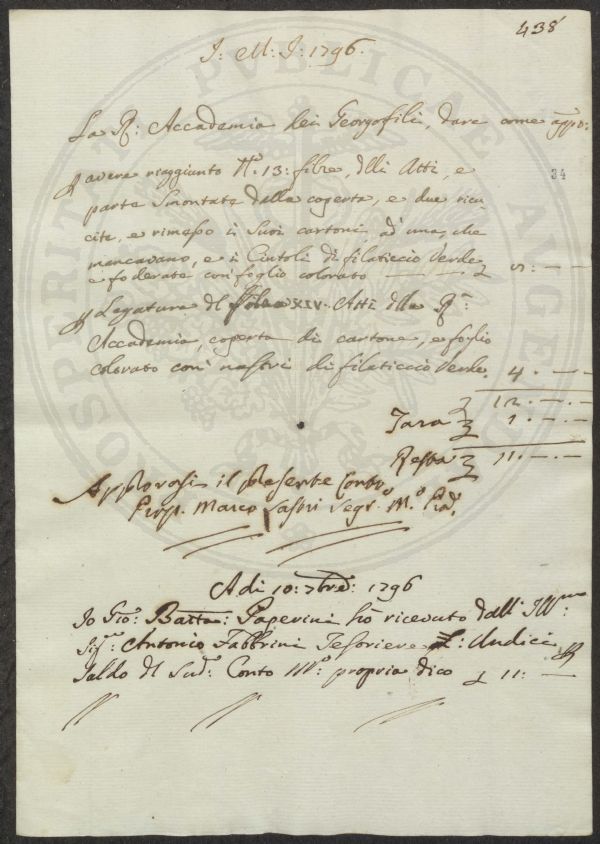 438
J: M: J: 1796.
La R: Accademia dei Georgofili, dare come app.o:
avere riaggiunto N.o 13: filze, dlli Atti, e
34
parte smontate dalla coperta, e due ricu-
cite, e rimesso i suoi cartoni ad una, che
mancavano, e i Cintoli di filaticcio Verde
e foderate con foglio colorato £ 8: — —
Legatura del XIV. Atti dlla R:
Accademia, coperta di cartone, e foglio
colorato con nastri di filaticcio Verde. 4. — . —
£ 12 . — . —
Tara £ 1 . — . —
Resta £ 11 . — . —
Approvasi il presente Conto
Prop. Marco Lastri Segr.
Adi 10: 7bre: 1796
Io Gio: Batta: Paperini hò ricevuto dall' Ill.mo:
Sig.: Antonio Fabbrini Tesoriere £: Undici
Saldo dl Sud.o Conto M.o propria dico £ 11: —
PROSPERITATI PUBLICAE AUGENDAE